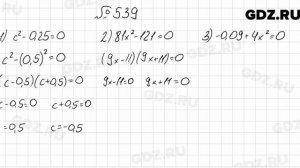 GDZ.RU
№ 539
1) c² - 0,25 = 0
c² - (0,5)² = 0
(c - 0,5)(c + 0,5) = 0
c - 0,5 = 0 c + 0,5 = 0
= 0,5 c = -0,5
2) 81x² - 121 = 0
(9x - 11)(9x + 11) = 0
9x - 11 = 0 9x + 11 = 0
3) -0,09 + 4x² = 0
GDZ.RU